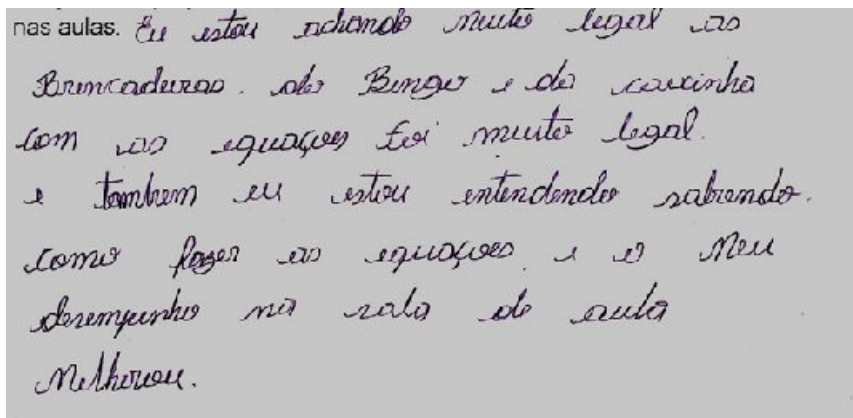 nas aulas. Eu estou achando muito legal as
Brincadeiras. do Bingo e da caixinha
com as equações foi muito legal.
e tambem eu estou entendendo sabendo.
como fazer as equações e o meu
desempenho na sala de aula
Melhorou.